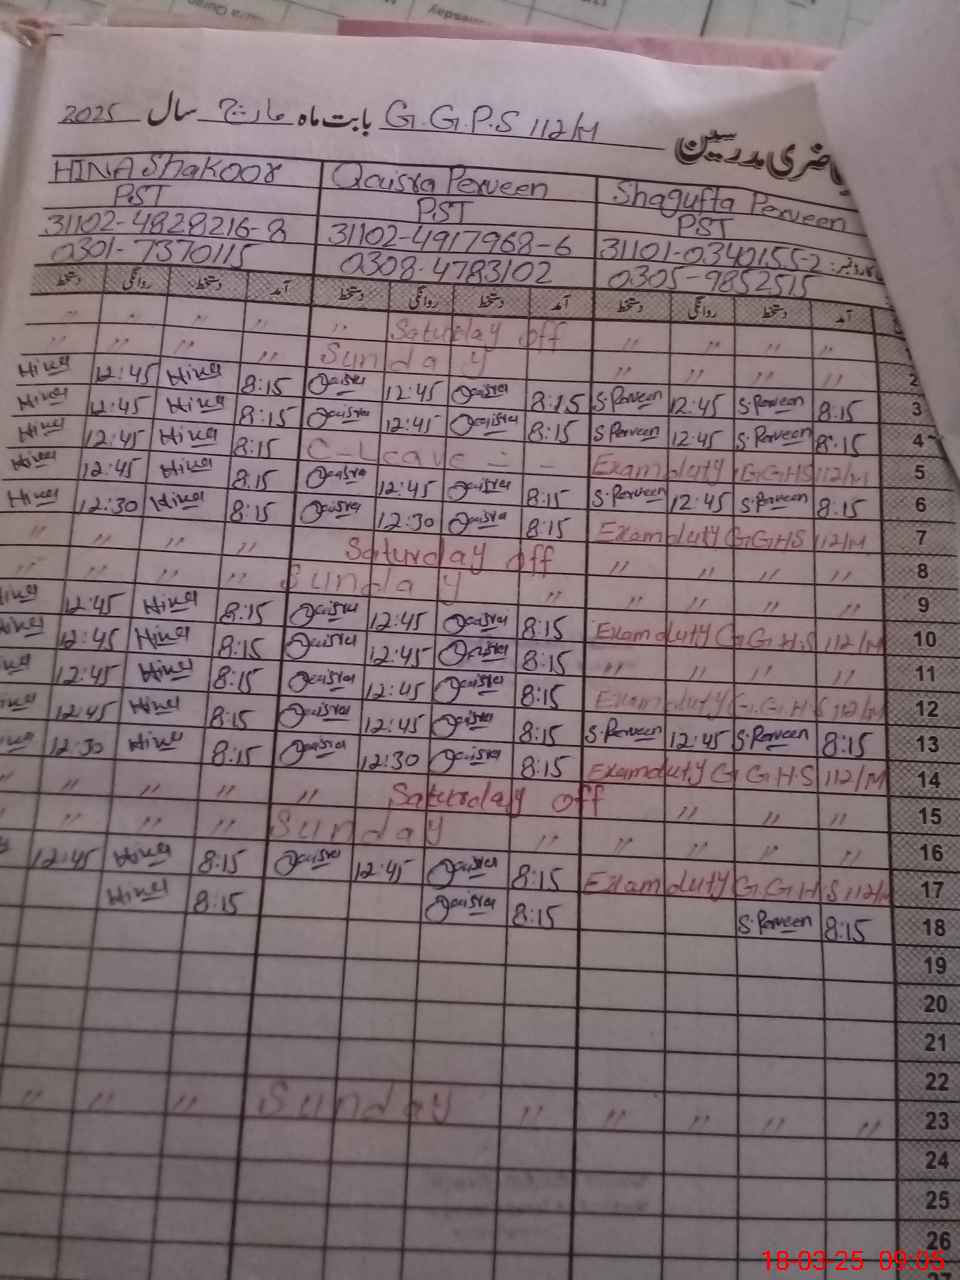 حاضری مدرسین G.G.P.S 112/M بابت ماہ مارچ سال 2025
HINA Shakoor Qaisra Perveen Shagufta Perveen
PST PST PST
31102-4828216-8 31102-4917968-6 31101-0340155-2
0301-7370115 0308-4783102 0305-9852515
دستخط روانگی دستخط آمد دستخط روانگی دستخط آمد دستخط روانگی دستخط آمد
" " " " Saturday off " " " " 1
" " " Sunday " " " " 2
Hina 12:45 Hina 8:15 Qaisra 12:45 Qaisra 8:15 S.Perveen 12:45 S.Perveen 8:15 3
Hina 12:45 Hina 8:15 Qaisra 12:45 Qaisra 8:15 S.Perveen 12:45 S.Perveen 8:15 4
Hina 12:45 Hina 8:15 C-Leave - - Exam duty GGHS 112/M 5
Hina 12:45 Hina 8:15 Qaisra 12:45 Qaisra 8:15 S.Perveen 12:45 S.Perveen 8:15 6
Hina 12:30 Hina 8:15 Qaisra 12:30 Qaisra 8:15 Exam duty GGHS 112/M 7
" " " " Saturday off " " " " 8
" " " " Sunday " " " " " 9
Hina 12:45 Hina 8:15 Qaisra 12:45 Qaisra 8:15 Exam duty G.G.H.S 112/M 10
Hina 12:45 Hina 8:15 Qaisra 12:45 Qaisra 8:15 " " " " 11
Hina 12:45 Hina 8:15 Qaisra 12:45 Qaisra 8:15 Exam duty G.G.H.S 112/M 12
Hina 12:45 Hina 8:15 Qaisra 12:45 Qaisra 8:15 S.Perveen 12:45 S.Perveen 8:15 13
Hina 12:30 Hina 8:15 Qaisra 12:30 Qaisra 8:15 Exam duty G.G.H.S 112/M 14
" " " " Saturday off " " " 15
" " " Sunday " " " " " 16
12:45 Hina 8:15 Qaisra 12:45 Qaisra 8:15 Exam duty G.G.H.S 112/M 17
Hina 8:15 Qaisra 8:15 S.Perveen 8:15 18
19
20
21
22
" " " Sunday " " " " " 23
24
25
26
27
18-03-25 09:05